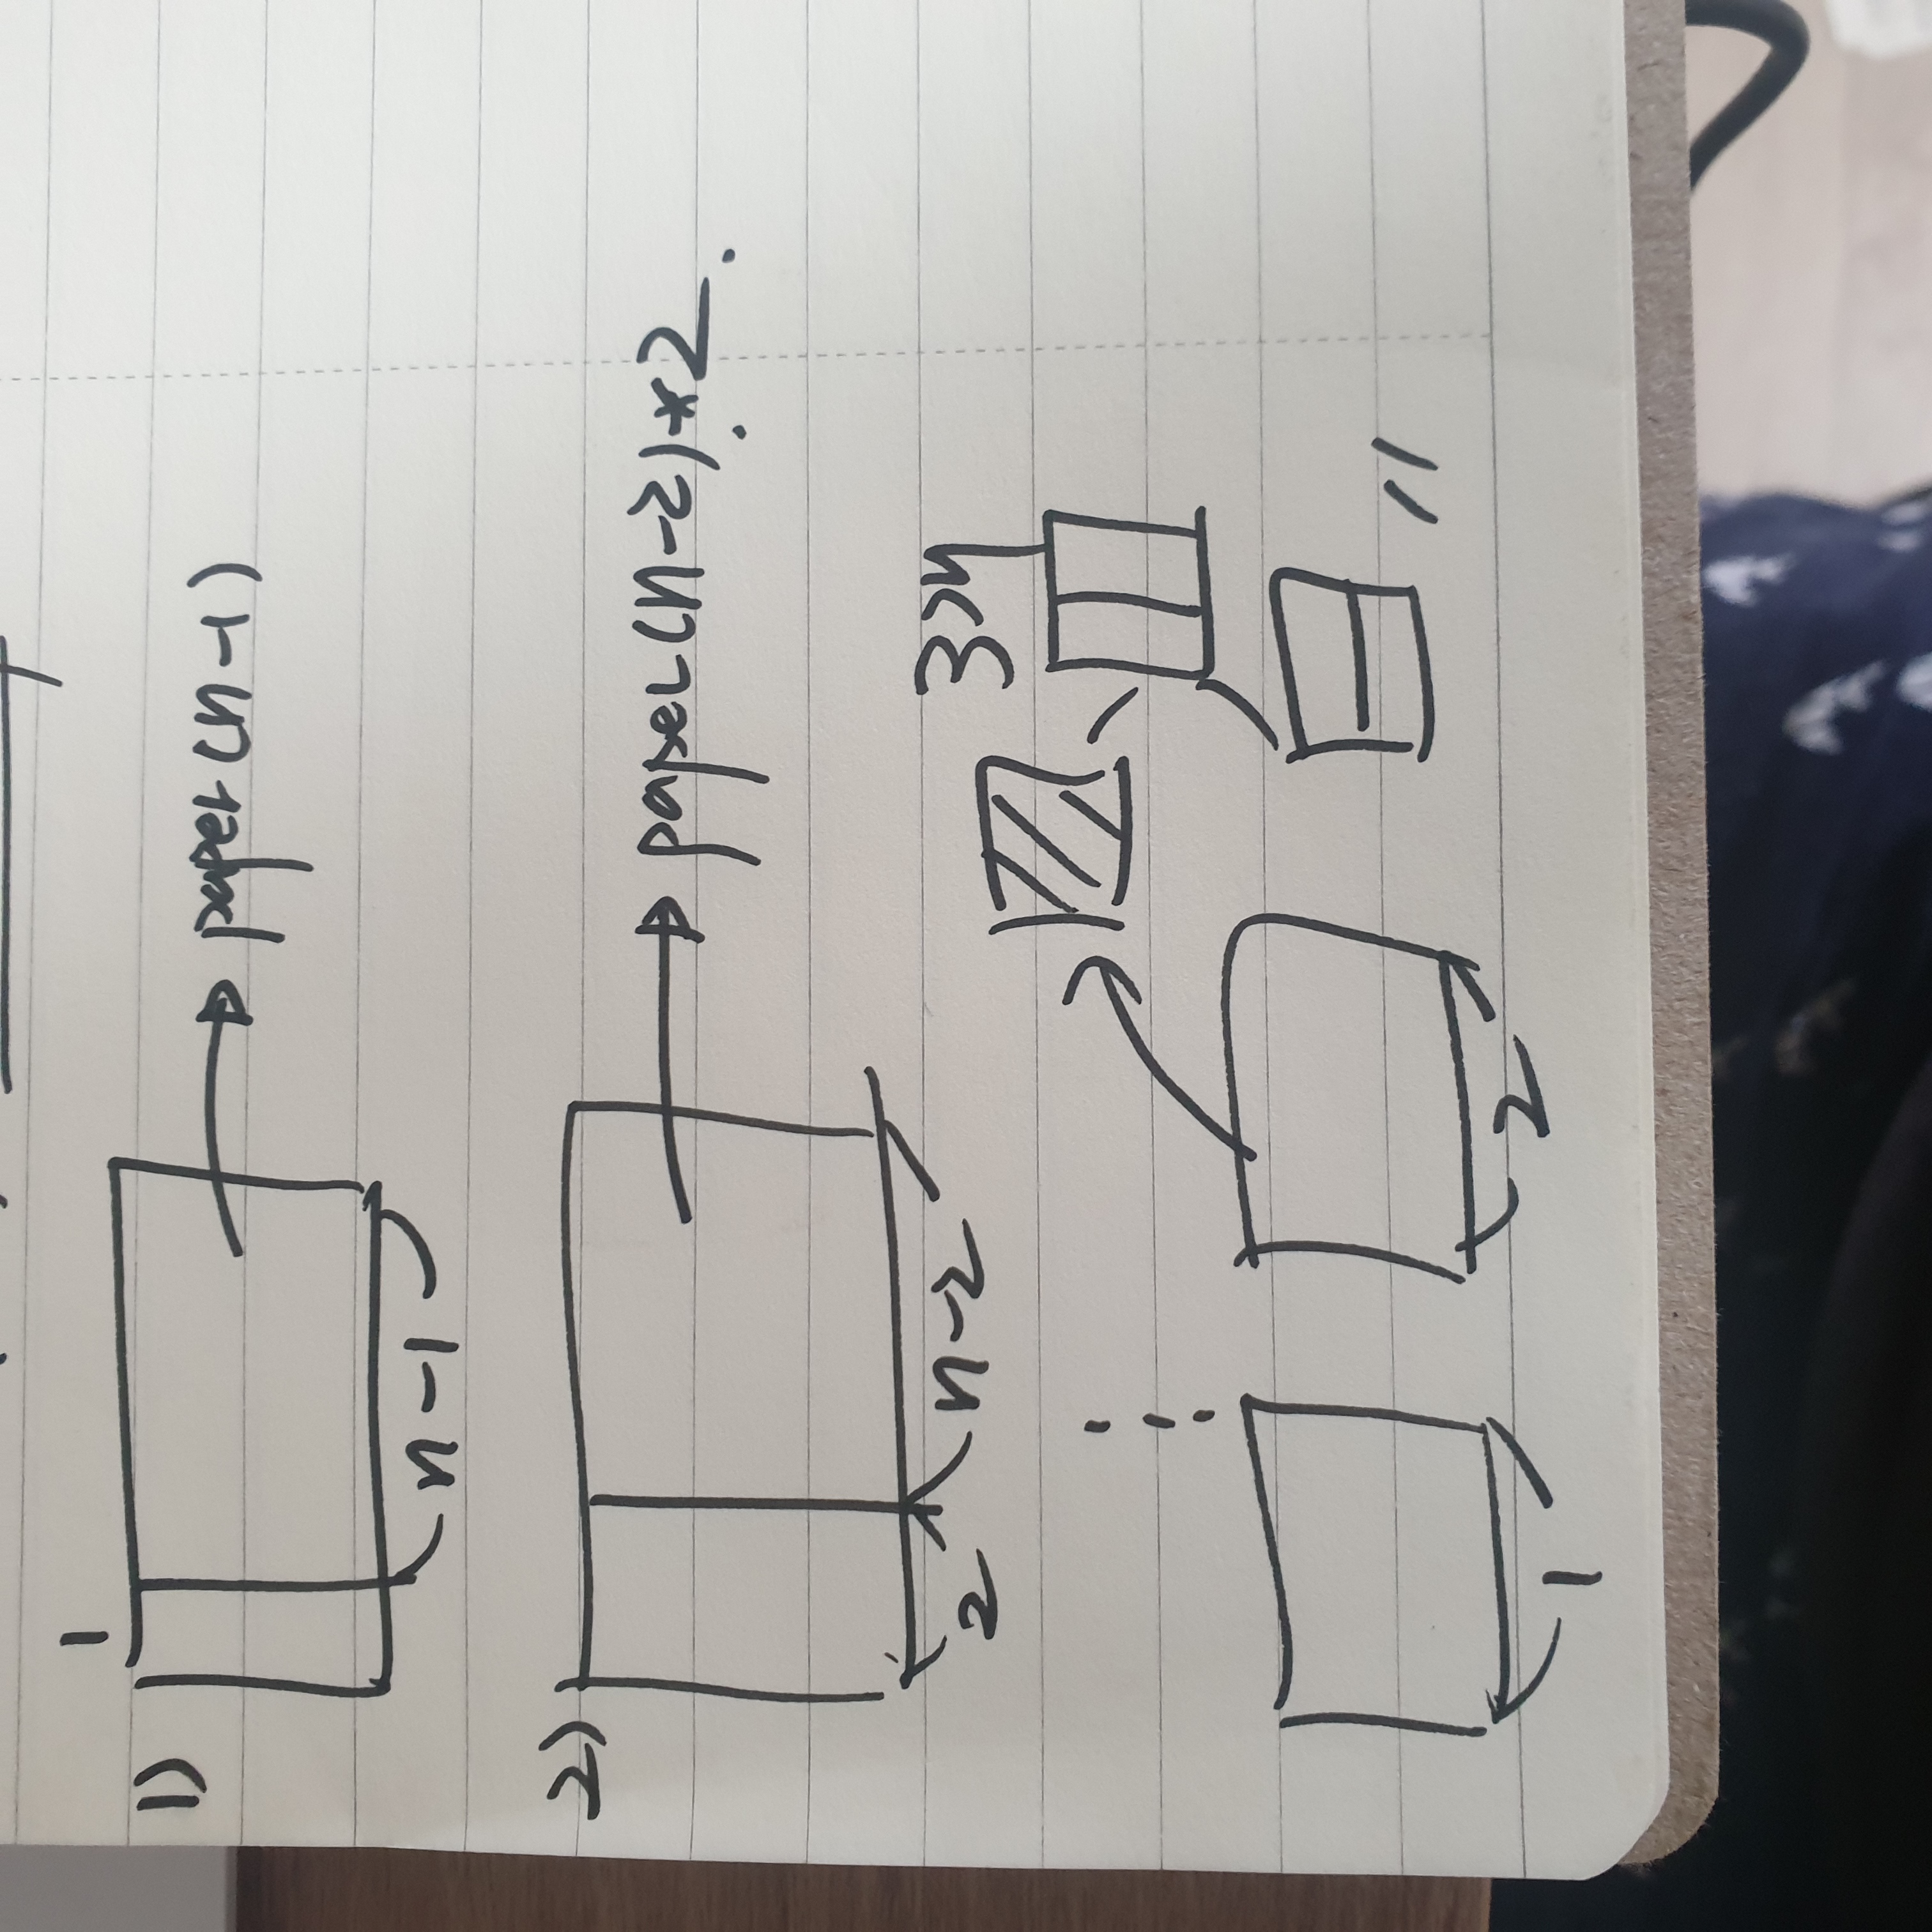 1
1)
paper(n-1)
n-1
2)
paper(n-2)*2.
2
n-2
3개
1
2